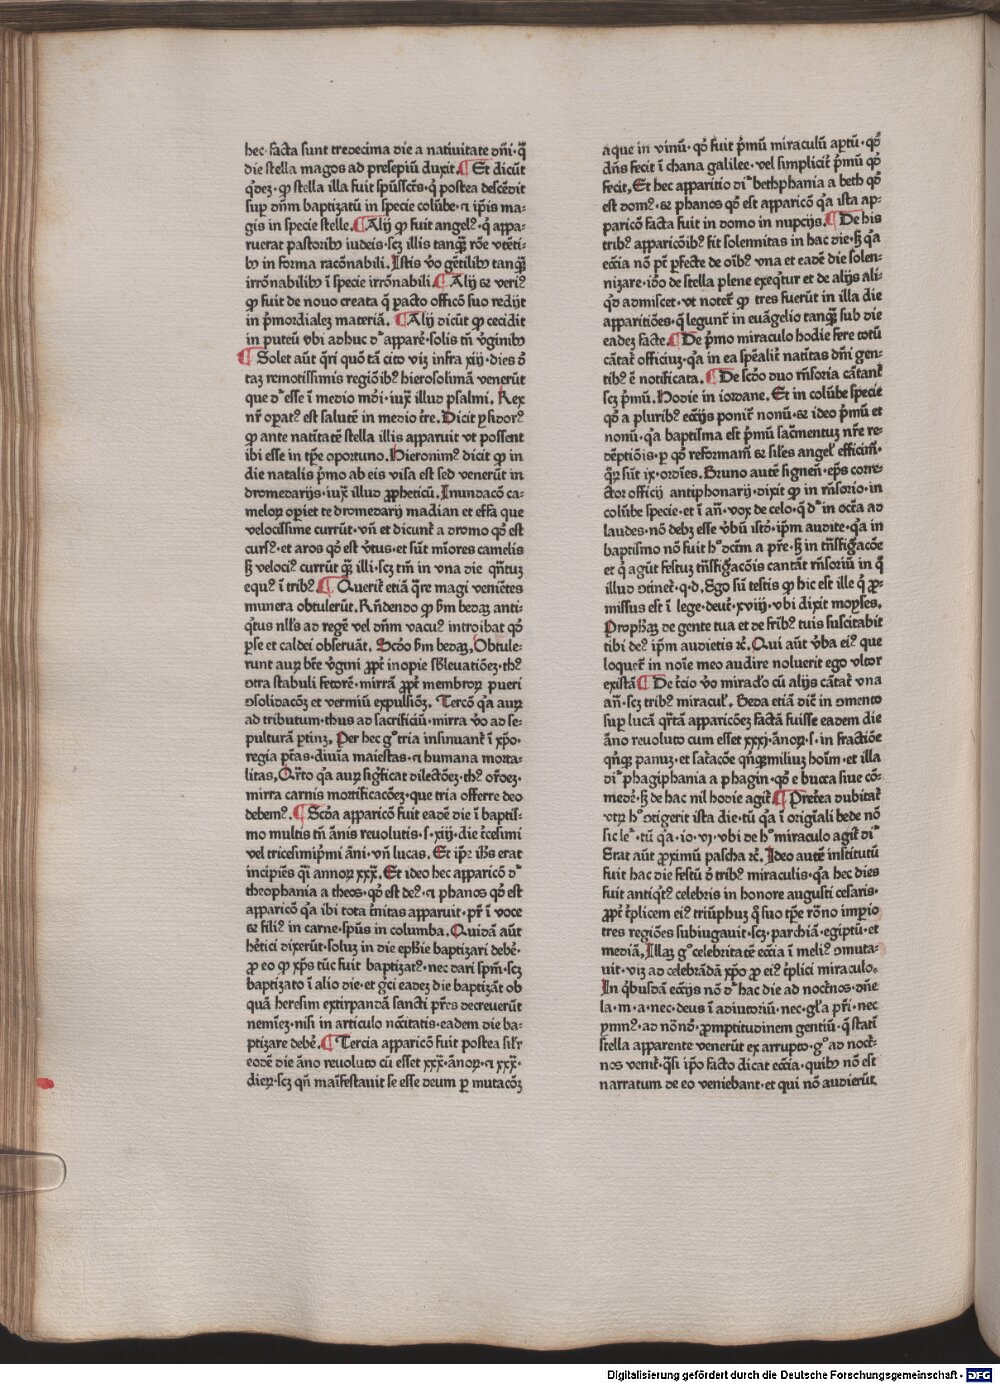 hec facta sunt tredecima die a natiuitate dñi· q̃
die stella magos ad presepiũ duxit. ¶ Et dicũt
q̇dez· ꝙ stella illa fuit spũsscũs· q̇ postea descẽdit
suꝑ dñm baptizatũ in specie colũbe· ⁊ ip̃is ma-
gis in specie stelle. ¶ Alij ꝙ fuit angelꝰ· q̇ appa-
ruerat pastoribꝫ iudeis· scꝫ illis tanqꝫ̃ rõe vtẽti-
bꝫ in forma racõnabili. Istis ṽo gẽtilibꝫ tanqꝫ̃
irrõnabilibꝫ ĩ specie irrõnabili ¶ Alij ⁊ veriꝰ
ꝙ fuit de nouo creata q̃ ꝑacto officõ suo redijt
in p̃mordialez materiã. ¶ Alij dicũt ꝙ cecidit
in puteũ vbi adhuc dꝛ apparẽ· solis tñ ṽginibꝫ
¶ Solet aũt q̃ri quõ tã cito viꝫ infra xiij· dies õ
taꝫ remotissimis regiõibꝰ hierosolimã venerũt
que dꝛ esse ĩ medio mũdi· iuxᷓ illud psalmi. Rex
nr̃ opatꝰ est salutẽ in medio ťre. Dicit ysidorꝰ
ꝙ ante natĩtatẽ stella illis apparuit vt possent
ibi esse in tp̃re oportuno. Hieronimꝰ dicit ꝙ in
die natalis p̃mo ab eis visa est sed venerũt in
dromedarijs· iuxᷓ illud ꝓpheticũ. Inundacõ ca-
meloꝝ operiet te dromedarij madian et effa que
velocissime currũt· vñ et dicunť a dromo qð est
cursꝰ· et aros qð est ṽtus· et sũt mĩores camelis
sꝫ velociꝰ currũt qꝫ̃ illi· scꝫ tm̃ in vna die qñtuꝫ
equꝰ ĩ tribꝰ ¶ Querit̃ etiã q̃re magi veniẽtes
munera obtulerũt. Rñdendo ꝙ ẜm bedaꝫ anti-
q̇tus nllꝰs ad regẽ vel dñm vacuꝰ introibat qð
ꝑse et caldei obseruãt. Scðo ẜm bedaꝫ. Obtule-
runt auꝝ bťe ṽgini ꝓpť inopie sb̃leuatiõeꝫ· thꝰ
ꝯtra stabuli fetorẽ· mirrã ꝓpť membroꝝ pueri
ꝯsolidacõꝫ et vermiũ expulsiõꝫ. Tercõ q̃a auꝝ
ad tributum· thus ad sacrificiũ· mirra ṽo ad se-
pulturã ptinꝫ. Per hec gͦ tria insinuant̃ ĩ xp̃o·
regia pťas· diuĩa maiestas· ⁊ humana morta-
litas. Q̃rto q̃a auꝝ sig̃ficat dilectõeꝫ· thꝰ or̃oeꝫ·
mirra carnis mortificacõeꝫ· que tria offerre deo
debemꝰ. ¶ Scða apparicõ fuit eadẽ die ĩ baptis-
mo multis tñ ãnis reuolutis· s· xiij· die ťcesimi
vel tricesimip̃mi ãni· vñ lucas. Et ip̃e ih̃s erat
incipiẽs q̃i annoꝝ xxx. Et ideo hec apparicõ dꝛ
theophania a theos· qð est deꝰ· ⁊ phanos qð est
apparicõ q̃a ibi tota ťnitas apparuit· pr̃ ĩ voce
⁊ filiꝰ in carne· spũs in columba. Quidã aũt
hẽtici dixerũt· soluꝫ in die eph̃ie baptizari debẽ·
ꝓ eo ꝙ xp̃s tũc fuit baptizatꝰ· nec dari spm̃· scꝫ
baptizato ĩ alio die· et g̃ci eadeꝫ die baptizãt ob
quã heresim extirpandã sancti pr̃es decreuerũt
nemĩeꝫ· nisi in articulo ncc̃itatis· eadem die ba-
ptizare debẽ. ¶ Tercia apparicõ fuit postea sil̃r
eodẽ die ãno reuoluto cũ esset xxx· ãnoꝝ· ⁊ xxx·
dieꝝ· scꝫ qñ maĩfestauit se esse deum ꝑ mutacõꝫ
aque in vinũ· qð fuit p̃mũ miraculũ aꝑtũ· qð
dñs fecit ĩ chana galilee· vel simpliciť p̃mũ qð
fecit. Et hec apparitio dĩꝛ bethphania a beth qð
est domꝰ· ⁊ phanos qð est apparicõ q̃a ista ap-
paricõ facta fuit in domo in nupcijs. ¶ De his
tribꝰ apparicõibꝰ fit solennitas in hac die· sꝫ q̃a
ecc̃ia nõ pt̃ ꝑfecte de oĩbꝰ vna et eadẽ die solen-
nizare· iðo de stella plene exeq̇tur et de alijs ali-
q̇ð admiscet· vt noteť ꝙ tres fuerũt in illa die
apparitiões· q̃ legunť in euãgelio tanqꝫ̃ sub die
eadeꝫ facte. ¶ De p̃mo miraculo hodie fere totũ
cãtať officiuꝫ· q̃a in ea sp̃ealiť natĩtas dñi gen-
tibꝰ ẽ notificata. ¶ De scðo duo rñsoria cãtant̃
scꝫ p̃mũ. Hodie in iordane. Et in colũbe specie
qð a pluribꝰ ecc̃ijs poniť nonũ· ⁊ ideo p̃mũ et
nonũ· q̃a baptisma est p̃mũ sac̃mentuꝫ nr̃e re-
dẽptiõis· ꝑ qð reformam̃ ⁊ sil̃es angel̃ efficim̃·
q̇r sũt ix· ordĩes. Bruno autẽ signeñ· ep̃s corre-
ctor officij antiphonarij· dixit ꝙ in rñsorio· in
colũbe specie· et ĩ añ· vox de celo· q̇ dꝛ in oct̃a ad
laudes· nõ debꝫ esse ṽbũ istð· ip̃m audite· q̃a in
baptismo nõ fuit hͦ dcm̃ a pr̃e· sꝫ in tñsfig̃acõe
et q̇ agũt festuꝫ tñsfig̃acõis cantãt rñsoriũ in q̃
illud ꝯtineť· q·d. Ego sũ testis ꝙ hic est ille q̇ ꝓ-
missus est ĩ lege· deut̃· xviij· vbi dixit moyses.
Prophꝫ̃ de gente tua et de fribꝰ tuis suscitabit
tibi deꝰ ip̃m audietis ⁊c̃. Qui aũt ṽba eiꝰ que
loquet̃ in noĩe meo audire noluerit ego vltor
existã ¶ De ťcio ṽo mirac̃lo cũ alijs cãtať vna
añ· scꝫ tribꝰ miracul̃. Beda etiã dic̃ in ꝯmento
suꝑ lucã q̃rtã apparicõeꝫ factã fuisse eadem die
ãno reuoluto cum esset xxxj· ãnoꝝ· s· in fractiõe
qñqꝫ panuꝫ· et sat̃acõe qñqꝫmiliuꝫ hoĩm· et illa
dĩꝛ phagiphania a phagin· qð e bucca siue cõ-
medeꝰ· sꝫ de hac nil hodie agiť ¶ Preťea dubitať
vtꝝ hͦ ꝯtigerit ista die· tũ q̃a ĩ origĩali bede nõ
sic leꝛ· tũ q̃a· io· vj· vbi de hͦ miraculo agiť dĩꝛ
Erat aũt proximũ pascha ⁊c̃. Ideo autẽ institutũ
fuit hac die festũ õ tribꝰ miraculis· q̃a hec dies
fuit antiq̇tꝰ celebris in honore augusti cesaris·
ꝓpť ťplicem eiꝰ triũphuꝫ q̃ suo tp̃re rõno imꝑio
tres regiões subiugauit· scꝫ· parchiã· egiptũ· et
mediã. Illaꝫ gͦ celebritatẽ ecc̃ia ĩ meliꝰ ꝯmuta-
uit· viꝫ ad celebrãdã xp̃o ꝓ eiꝰ ťplici miraculo.
In q̇busdã ecc̃ijs nõ dꝛ hac die ad noct̃nos· dñe
la· m· a· nec· deus ĩ adiutoiũ· nec· gl̃a pr̃i· nec
ymnꝰ· ad nõnð· ꝓmptitudinem gentiũ· q̃ statĩ
stella apparente venerũt ex arrupto· gͦ ad noct̃-
nos veniť· q̃si ip̃o facto dicat ecc̃ia· quibꝫ nõ est
narratum de eo veniebant· et qui nõ audierũt
Digitalisierung gefördert durch die Deutsche Forschungsgemeinschaft - DFG